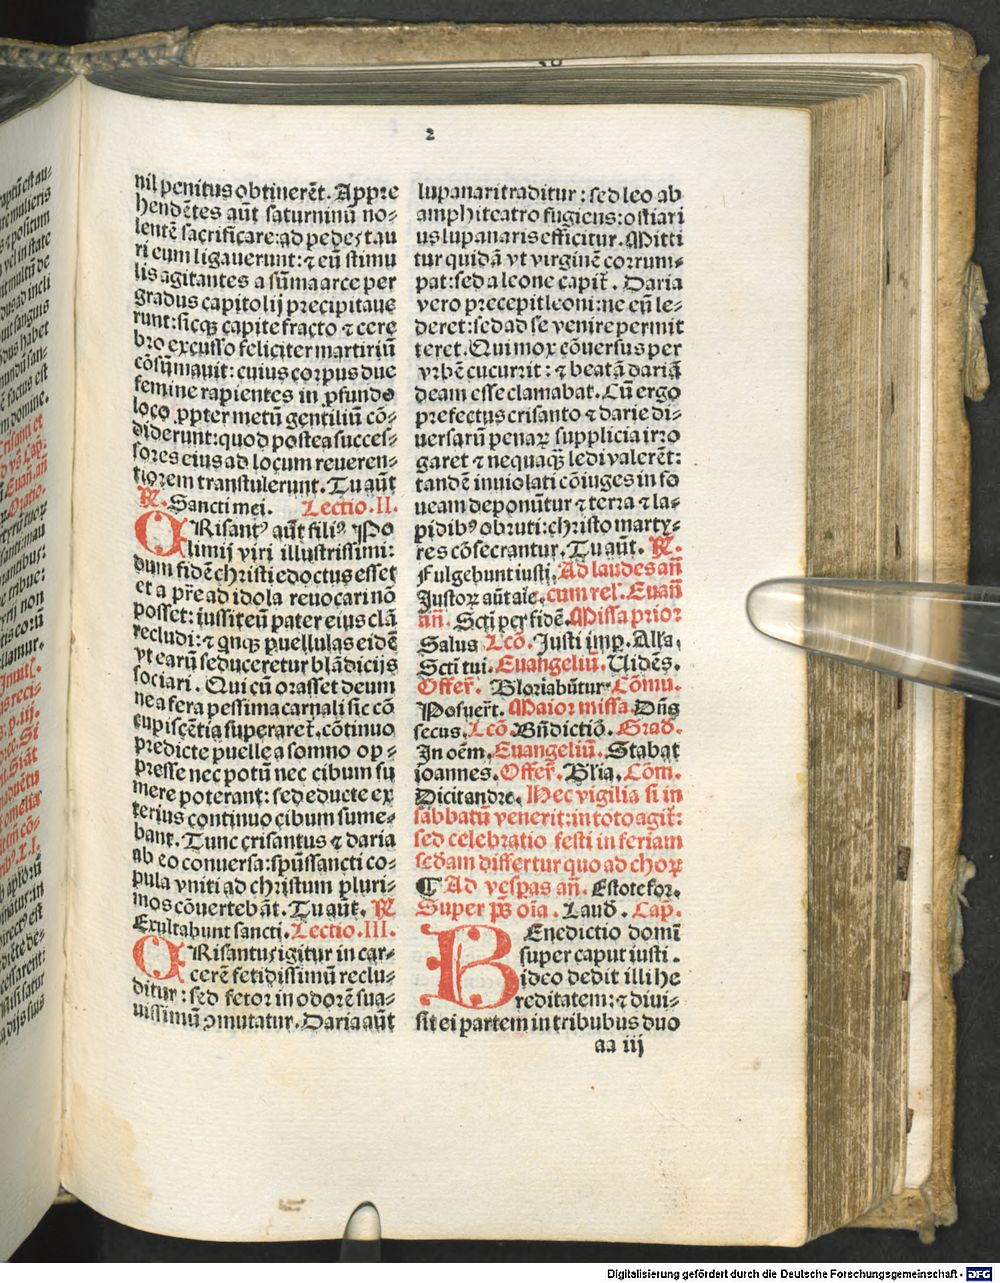 2
nil penitus obtinerēt. Appre
hendētes aūt saturninū no-
lentē sacrificare: ad pedes tau
ri eum ligauerunt: ⁊ eū stimu
lis agitantes a sūma arce per
gradus capitolij precipitaue
runt: sicqȝ capite fracto ⁊ cere
bro excusso feliciter martiriū
cōsūmauit: cuius corpus due
femine rapientes in ꝓfundo
loco ꝓpter metū gentiliū cō-
diderunt: quod postea succes-
sores eius ad locum reueren-
tiorem transtulerunt. Tu aūt
℟. Sancti mei. Lectio.II.
CRisantꝰ aūt filiꝰ Po
limij viri illustrissimi:
dum fidē christi edoctus esset
et a pr̄e ad idola reuocari nō
posset: iussit eū pater eius clā
recludi: ⁊ qnqȝ puellulas eidē
vt earū seduceretur blādicijs
sociari. Qui cū orasset deum
ne a fera pessima carnali sic cō
cupiscētia superaret. cōtinuo
predicte puelle a somno op-
presse nec potū nec cibum su
mere poterant: sed educte ex
terius continuo cibum sume-
bant. Tunc crisantus ⁊ daria
ab eo conuersa: spūssancti co-
pula vniti ad christum pluri-
mos cōuertebāt. Tu aūt. ℟
Exultabunt sancti. Lectio.III.
CRisantus igitur in car-
cerē fetidissimū reclu-
ditur: sed fetor in odorē sua-
uissimū ꝯmutatur. Daria aūt
lupanari traditur: sed leo ab
amphiteatro fugiens: ostiari
us lupanaris efficitur. Mitti
tur quidā vt virginē corrum-
pat: sed a leone capit̄. Daria
vero precepit leoni: ne eū le-
deret: sed ad se venire permit
teret. Qui mox cōuersus per
vrbē cucurrit: ⁊ beatā dariā
deam esse clamabat. Cū ergo
prefectus crisanto ⁊ darie di-
uersarū penaꝝ supplicia irro
garet ⁊ nequaqȝ ledi valerēt:
tandē inuiolati cōiuges in fo
ueam deponūtur ⁊ terra ⁊ la-
pidibꝰ obruti: christo marty-
res cōsecrantur. Tu aūt. ℟.
Fulgebunt iusti. Ad laudes añ
Justoꝝ aūt aīe. cum relꝭ. Euañ
añ. Scti per fidē. Missa prior
Salus Lcō. Justi imp. Alla.
Scti tui. Euangeliū. Uidēs.
Offer̄. Gloriabūtur. Cōmu.
Posuer̄t. Maior missa. Dñs
secus. Lcō. Bñdictiō. Grad.
In oēm. Euangeliū. Stabat
ioannes. Offer̄. Glia. Cōm.
Dicit andre. Hec vigilia si in
sabbatū venerit: in toto agit̄:
sed celebratio festi in feriam
scdam differtur quo ad choꝝ
¶ Ad vespas añ. Estote for.
Super ps̄ oīa. Laud. Cap̄.
BEnedictio domī
super caput iusti.
ideo dedit illi he
reditatem: ⁊ diui-
sit ei partem in tribubus duo
aa iij
Digitalisierung gefördert durch die Deutsche Forschungsgemeinschaft - DFG